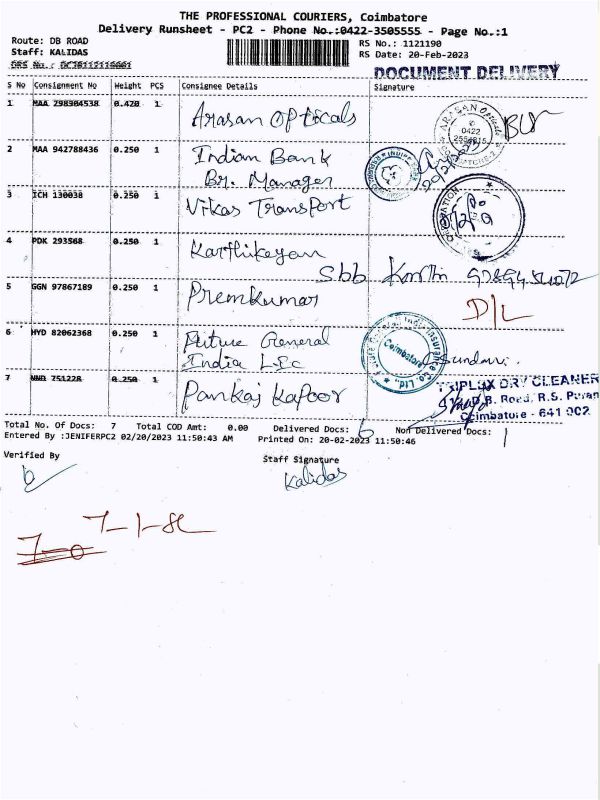 THE PROFESSIONAL COURIERS, Coimbatore
Delivery Runsheet - PC2 - Phone No.:0422-3505555 - Page No.:1
Route: DB ROAD
RS No.: 1121190
Staff: KALIDAS
RS Date: 20-Feb-2023
DRS No.:
DOCUMENT DELIVERY
S No Consignment No Weight PCS Consignee Details Signature
1 MAA 298304538 0.420 1 Arasan Opticals
ARASAN Opticals
0422
2 MAA 942788436 0.250 1 Indian Bank
Br. Manager
3 ICH 130038 0.250 1 Vikas Transport
4 PDK 293568 0.250 1 Karthikeyan
5 GGN 97867189 0.250 1 Premkumar
D/L
6 HYD 82062368 0.250 1 Future General
India
Coimbatore
Sundari.
7 751228 0.250 1 Pankaj Kapoor
TRIPLEX DRY CLEANER
D.B. Road, R.S. Puram
Coimbatore - 641 002
Total No. Of Docs: 7 Total COD Amt: 0.00 Delivered Docs: 6 Non Delivered Docs: 1
Entered By :JENIFERPC2 02/20/2023 11:50:43 AM Printed On: 20-02-2023 11:50:46
Verified By
Staff Signature
Kalidas